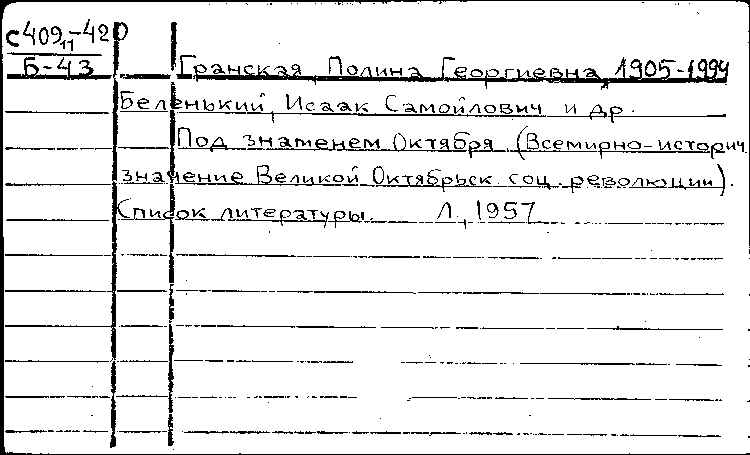 С409,11-420
Б-43
Гранская, Полина Георгиевна, 1905-1994
Беленький, Исаак Самойлович и др.
Под знаменем Октября (Всемирно-историч.
значение Великой Октябрьск. соц. революции).
Список литературы. Л, 1957